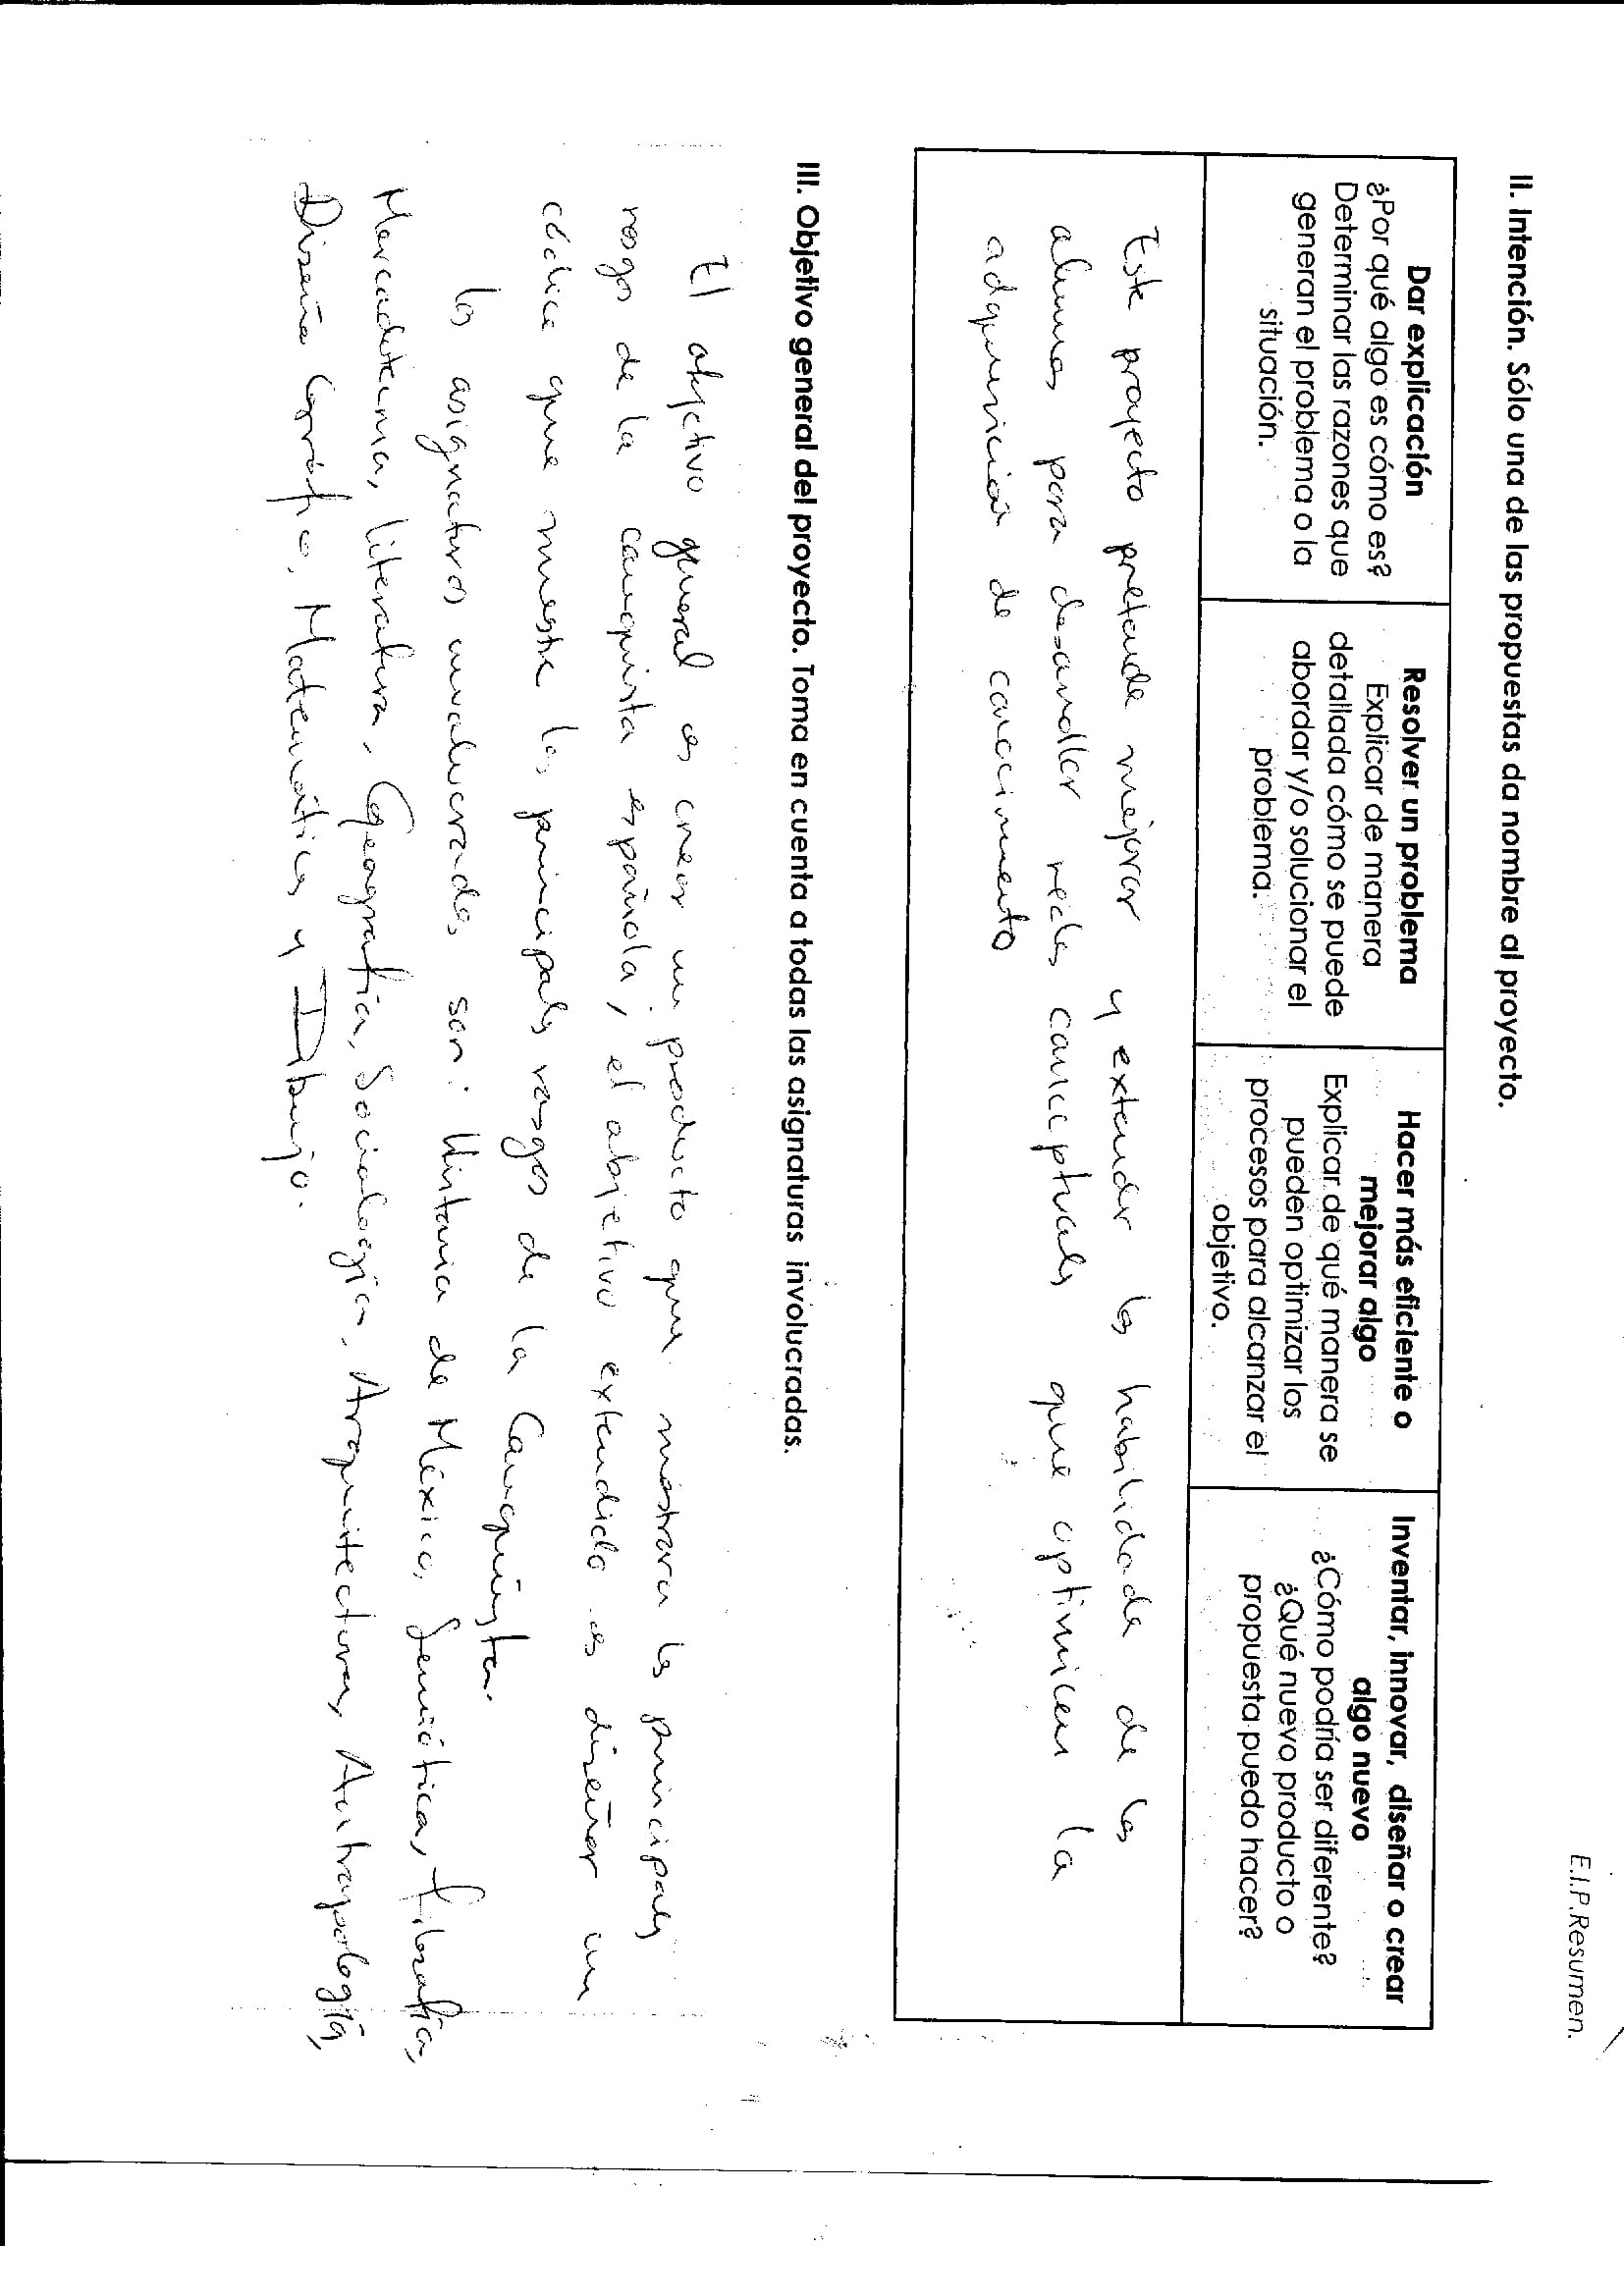 E.I.P.Resumen.
II. Intención. Sólo una de las propuestas da nombre al proyecto.
Dar explicación
¿Por qué algo es cómo es?
Determinar las razones que
generan el problema o la
situación.
Resolver un problema
Explicar de manera
detallada cómo se puede
abordar y/o solucionar el
problema.
Hacer más eficiente o
mejorar algo
Explicar de qué manera se
pueden optimizar los
procesos para alcanzar el
objetivo.
Inventar, innovar, diseñar o crear
algo nuevo
¿Cómo podría ser diferente?
¿Qué nuevo producto o
propuesta puedo hacer?
Este proyecto pretende mejorar y extender las habilidade de los
alumnos para desarrollar redes conceptuales que optimicen la
adquisición de conocimiento
III. Objetivo general del proyecto. Toma en cuenta a todas las asignaturas involucradas.
El objetivo general es crear un producto que mostrara los principales
rasgos de la conquista española, el objetivo extendido es diseñar un
códice que muestre los principales rasgos de la Conquista.
las asignaturas involucradas son: Historia de México, Semiótica, Filosofía,
Mercadotecnia, literatura, Geografía, Sociología, Arquitectura, Antropología,
Diseño Gráfico, Matemáticas y Dibujo.